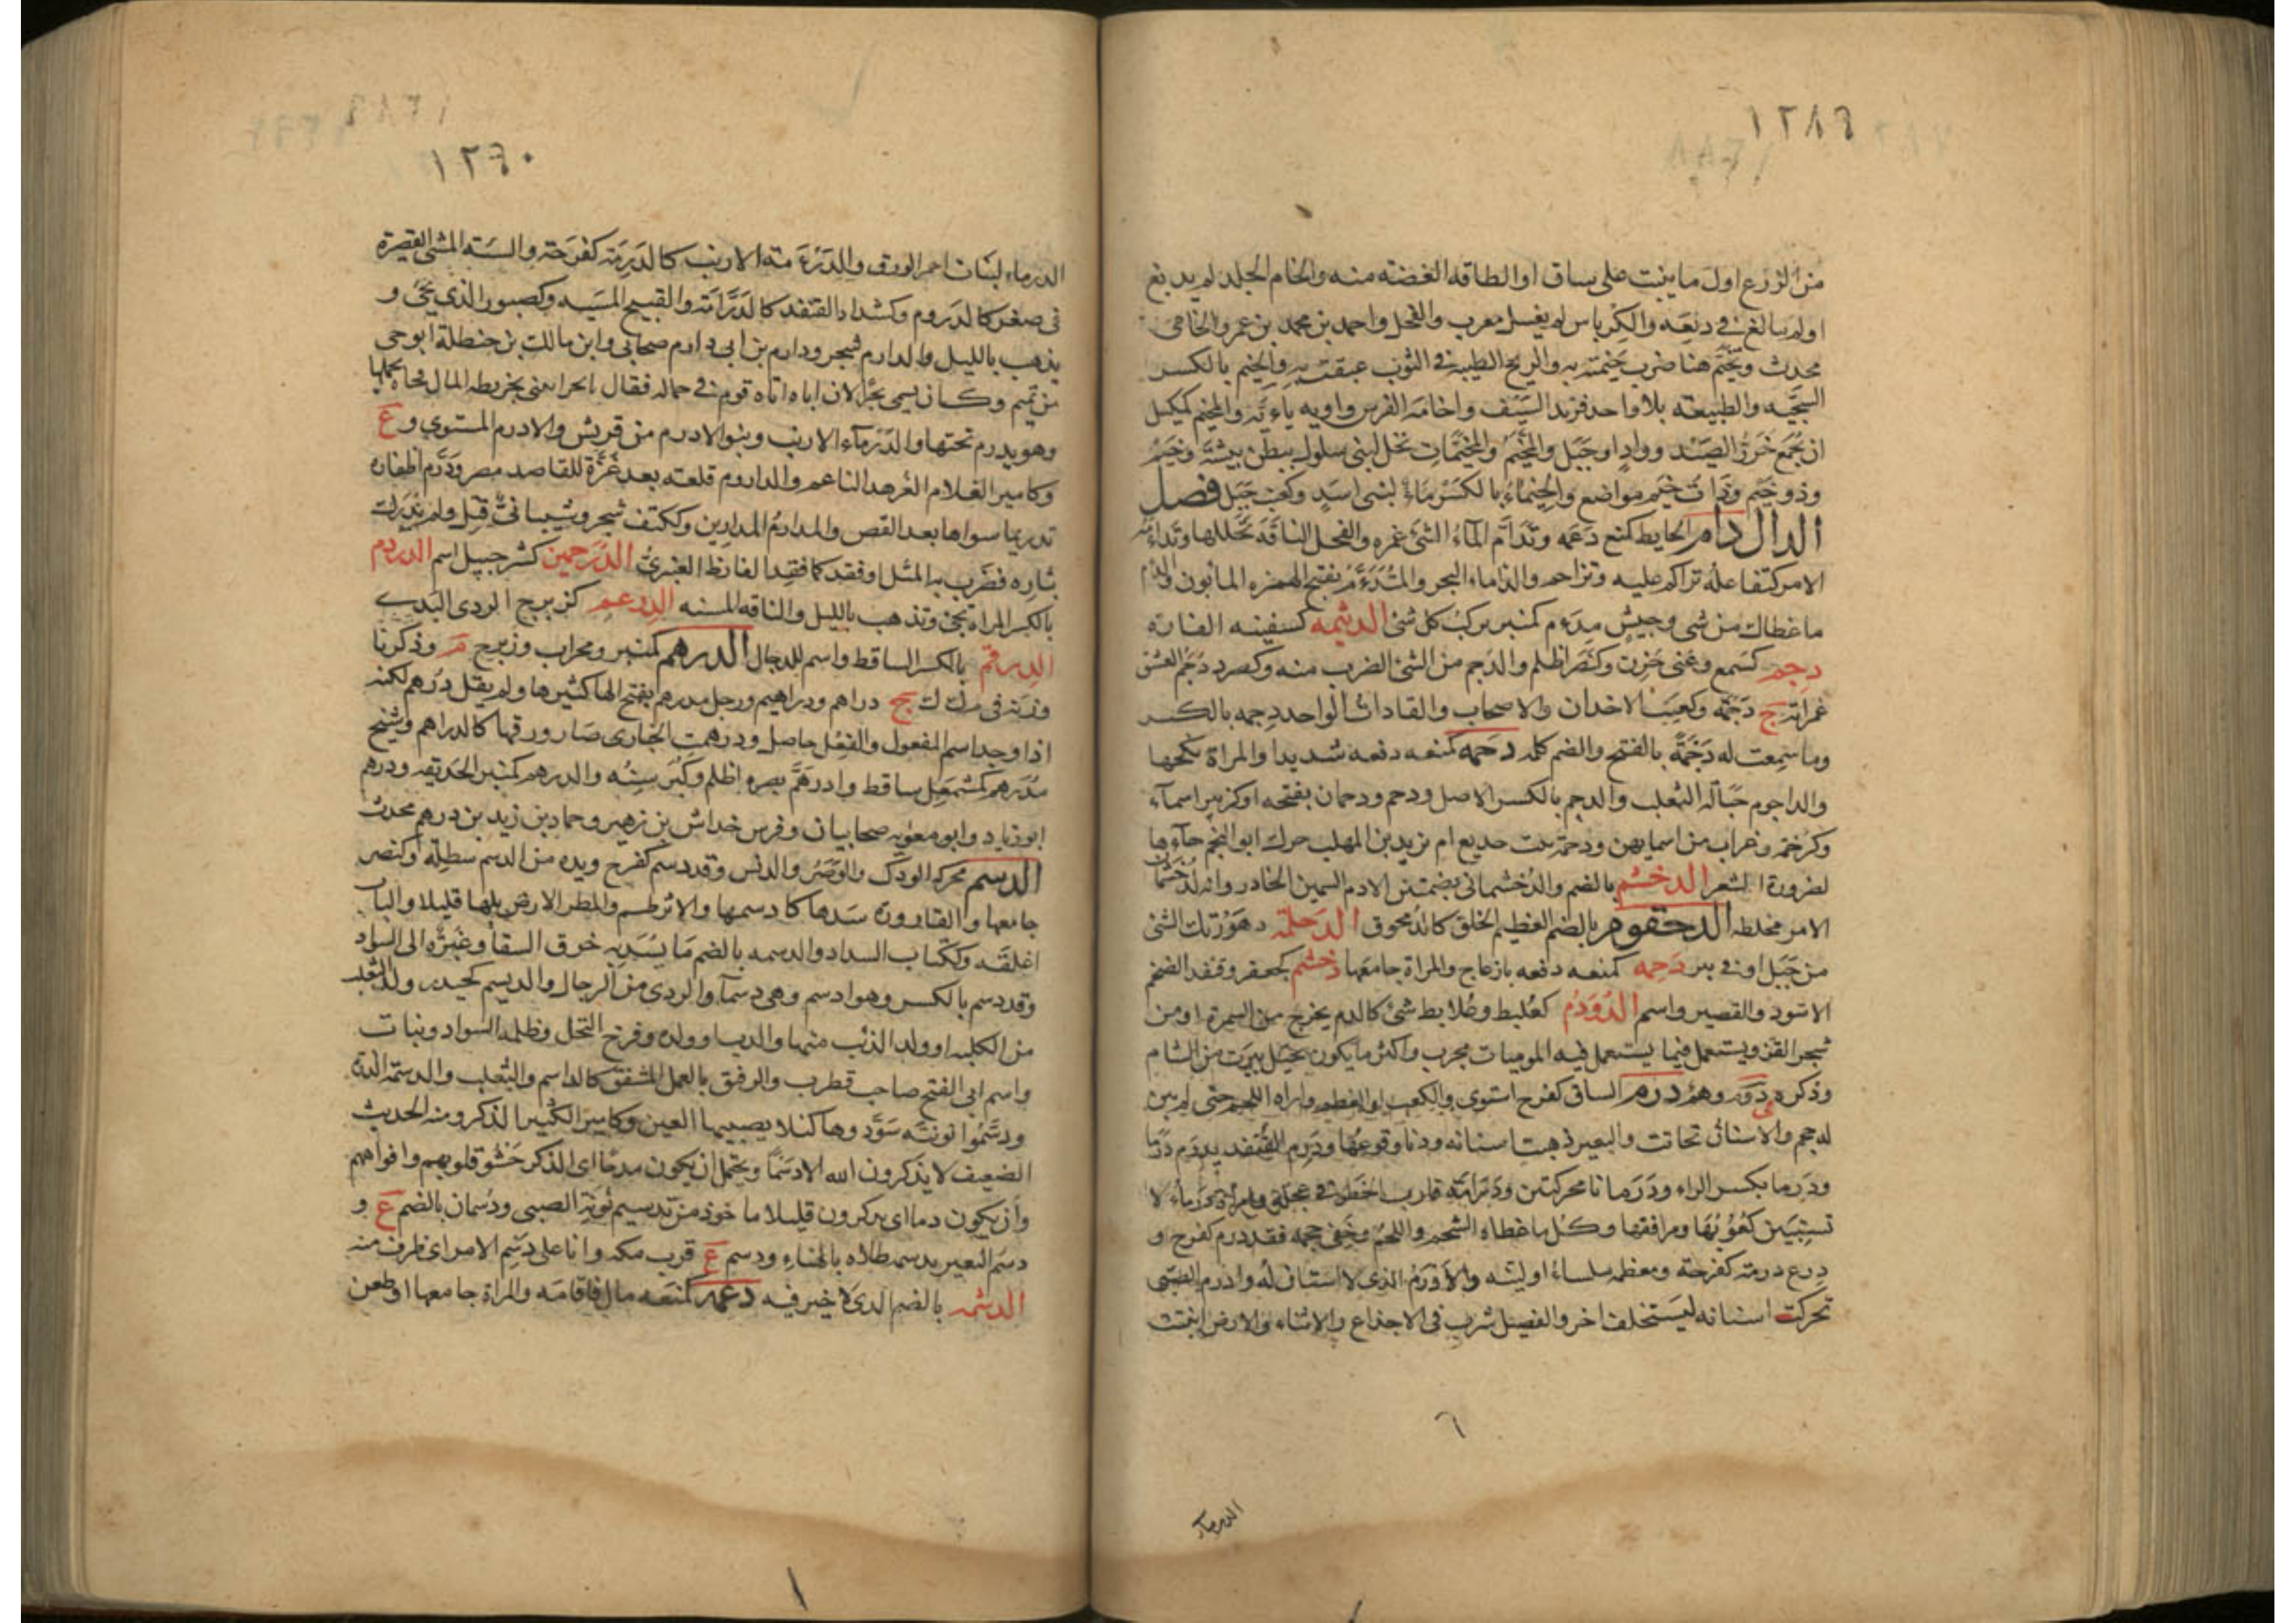 ١٢٨٩
من الزرع اول ما ينبت على ساق او الطاقه الغضته منه والخام الجلد لم يدبغ
او لم يبالغ في دبغه والكرباس لم يغسل معرب والفحل واحمد بن محمد بن عمرو الخامي
محدث وتخيم هنا ضرب خيمته به والريح الطيبه في الثوب عبقت به والخيم بالكسر
السجيه والطبيعته بلا واحد فرند السيف واخامه الفرس واويه يائيه والمخيم كمكيل
ان تجمع جرز الصيد وواد او جبل والمخيم والمخيمات نخل لبني سلول ببطن بيشة وخيم
وذو خيم وذات خيم مواضع والخيماء بالكسر ماء لبني اسد وكعب جبل فصل
الدال دام الحايط كمنع دعمه وتدأم الماء الشئ غمره والفحل الناقه تجللها وتداءم
الامر كتفاعله تراكم عليه وتزاحم والداماء البحر والمتدءم بفتح الهمزه المابون والدام
ما غطاك من شي وجيش مدءم كمنبر يركب كل شئ الدئمه كسفينه الفاره
دجم كسمع وعني حزن وكنصر اظلم والدجم من الشئ الضرب منه وكصرد دجم العشق
غمراته ج دجمه وكعنب الاخدان والاصحاب والقادات الواحد دجمه بالكسر
وما سمعت له دجمة بالفتح والضم كله دحمه كمنعه دفعه شديدا والمراة نكحها
والداحوم حبالة الثعلب والدحم بالكسر الاصل ودحم ودحمان بفتحه او كزبير اسماء
وكرحمه وغراب من اسمايهن ودحمة بنت حديع ام يزيد بن المهلب حرك ابو النجم حاءها
لضرورة الشعر الدخشم بالضم والدخشماني بضمتين الادم السمين الحادر وانه لدخشمان
الامر مخلطه الدحقوم بالضم العظيم الخلق كالدمحوق الدحلمة دهورتك الشئ
من جبل او في بير دخمه كمنعه دفعه بازعاج والمراة جامعها دخشم كجعفر وقنفد الضخم
الاسود والقصير واسم الدودم كعلبط وعلابط شئ كالدم يخرج من السمرة او من
شجر القز ويستعمل فيما يستعمل فيه الموميات مجرب واكثر ما يكون بجبل بيروت من الشام
وذكره وهم درم الساق كفرح استوى والكعب او العظم واراه اللحم حتى لم يبن
له حجم والاسنان تحاتت والبعير ذهبت اسنانه ودنا وقوعها ودرم القنفد يدرم درما
ودرما بكسر الراء ودرمانا محركتين ودرامة قارب الخطو في عجلة وامراة درماء لا
تستبين كعوبها ومرافقها وكل ما غطاه الشحم واللحم وخفى حجمه فقد درم كفرح و
درع درمة كفرحة ومعظمه ملساء او لينه والادرم الذي لا اسنان له وادرم الصبي
تحركت اسنانه ليستخلف اخر والفصيل شرب في الاجذاع والاثناء والارض انبتت
٦
الدرماء
١٢٩٠
الدرماء لنبات احمر الورق والدرمة الارنب كالدرمة كفرحة والسته المشى القصيرة
في صغر كالدروم وكشداد القنفد كالدرامة والقبيح المشيه وكصبور الذي يجئ و
يذهب بالليل والدارم شجر ودارم بن ابي دارم صحابي وابن مالك بن حنظلة ابو حي
من تميم وكان يسمى بحرا لان اباه اتاه قوم في حماله فقال ابحر ائتني بخريطه المال فجاه يحملها
وهو يدرم تحتها والدرماء الارنب وبنوا الادرم من قريش والادرم المستوي و ع
وكامير الغلام الفرهد الناعم والداروم قلعته بعد غزة للقاصد مصر ودرم اظفاره
تدريما سواها بعد القص والمدارم المدارين وككتف شجر وشيباني قتل ولم يدرك
بثاره فضرب به المثل او فقد كما فقد القارظ العنزي الدرحمين كشرحبيل اسم الدردم
بالكسر المراة تجئ وتذهب بالليل والناقه المسنه الدرعم كزبرج الردي البذي
الدرقم بالكسر الساقط واسم للدجال الدرهم كمنبر ومحراب وزبرج م وذكرنا
وزنه في م ك ك ج دراهم ودراهيم ورجل مدرهم بفتح الها كثيرها ولم يقل درهم لكنه
اذا وجد اسم المفعول والفعل حاصل ودرهمت الخبازى صار ورقها كالدراهم وشيخ
مدرهم كمشمعل ساقط وادرهم بصره اظلم وكبر سنه والدرهم كمنبر الحديقه ودرهم
ابو زياد وابو معويه صحابيان وفرس خداش بن زهير وحماد بن زيد بن درهم محدث
الدسم محركه الودك والوضر والدنس وقد دسم كفرح ويده من الدسم سطلة وكنصر
جامعها والقاروره سدها كادسمها والاثر طسم والمطر الارض بلها قليلا والباب
اغلقه وككتاب السداد والدسمه بالضم ما يسد به خرق السقا وغبره الى السواد
وقد دسم بالكسر وهو ادسم وهي دسماء والردي من الرجال والديسم كحيدر ولد الثعلب
من الكلبه او ولد الذئب منها والدب او ولده وفرخ النحل وظلمه السواد ونبات
واسم ابي الفتح صاحب قطرب والرفيق بالعمل المشفق كالداسم والثعلب والدسمه الذرة
ودسموا نونته سودوها كيلا يصيبها العين وكامير الكثير الذكر ومنه الحديث
الضعيف لا يذكرون الله الا دسما ويحتمل ان يكون مدحا اي الذكر حشو قلوبهم وافواههم
وان يكون ذما اي يذكرون قليلا ما خوذ من تدسيم نونة الصبي ودسمان بالضم ع و
دسم البعير يدسمه طلاه بالهناء ودسم ع قرب مكه وانا على دسم الامر اي طرف منه
الدشمه بالضم الذي لا خير فيه دعمه كمنعه مال فاقامه والمراة جامعها او طعن